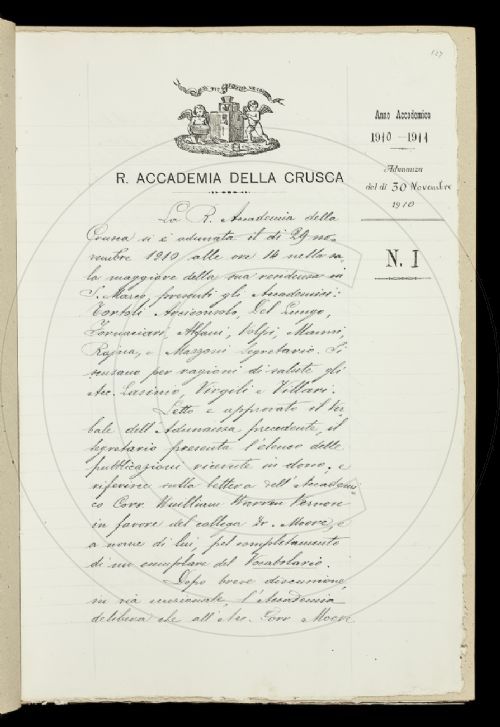 127
R. ACCADEMIA DELLA CRUSCA
Anno Accademico
1910 - 1911
Adunanza
del dì 30 Novembre
1910
N. I
La R. Accademia della
Crusca si è adunata il dì 29 no-
vembre 1910 alle ore 14 nella sa-
la maggiore della sua residenza in
S. Marco, presenti gli Accademici:
Tortoli, Arcicons., Del Lungo,
Fornaciari, Alfani, Volpi, Manni,
Rajna, e Mazzoni Segretario. Si
scusano per ragioni di salute gli
Acc. Lasinio, Virgili e Villari.
Letto e approvato il Ver-
bale dell'Adunanza precedente, il
Segretario presenta l'elenco delle
pubblicazioni ricevute in dono, e
riferisce sulla lettera dell'Accademi-
co Corr. William Warren Vernon
in favore del collega Dr. Moore, e
a nome di lui, pel completamento
di un esemplare del Vocabolario.
Dopo breve discussione,
in via eccezionale, l'Accademia
delibera che all'Acc. Corr. Moore